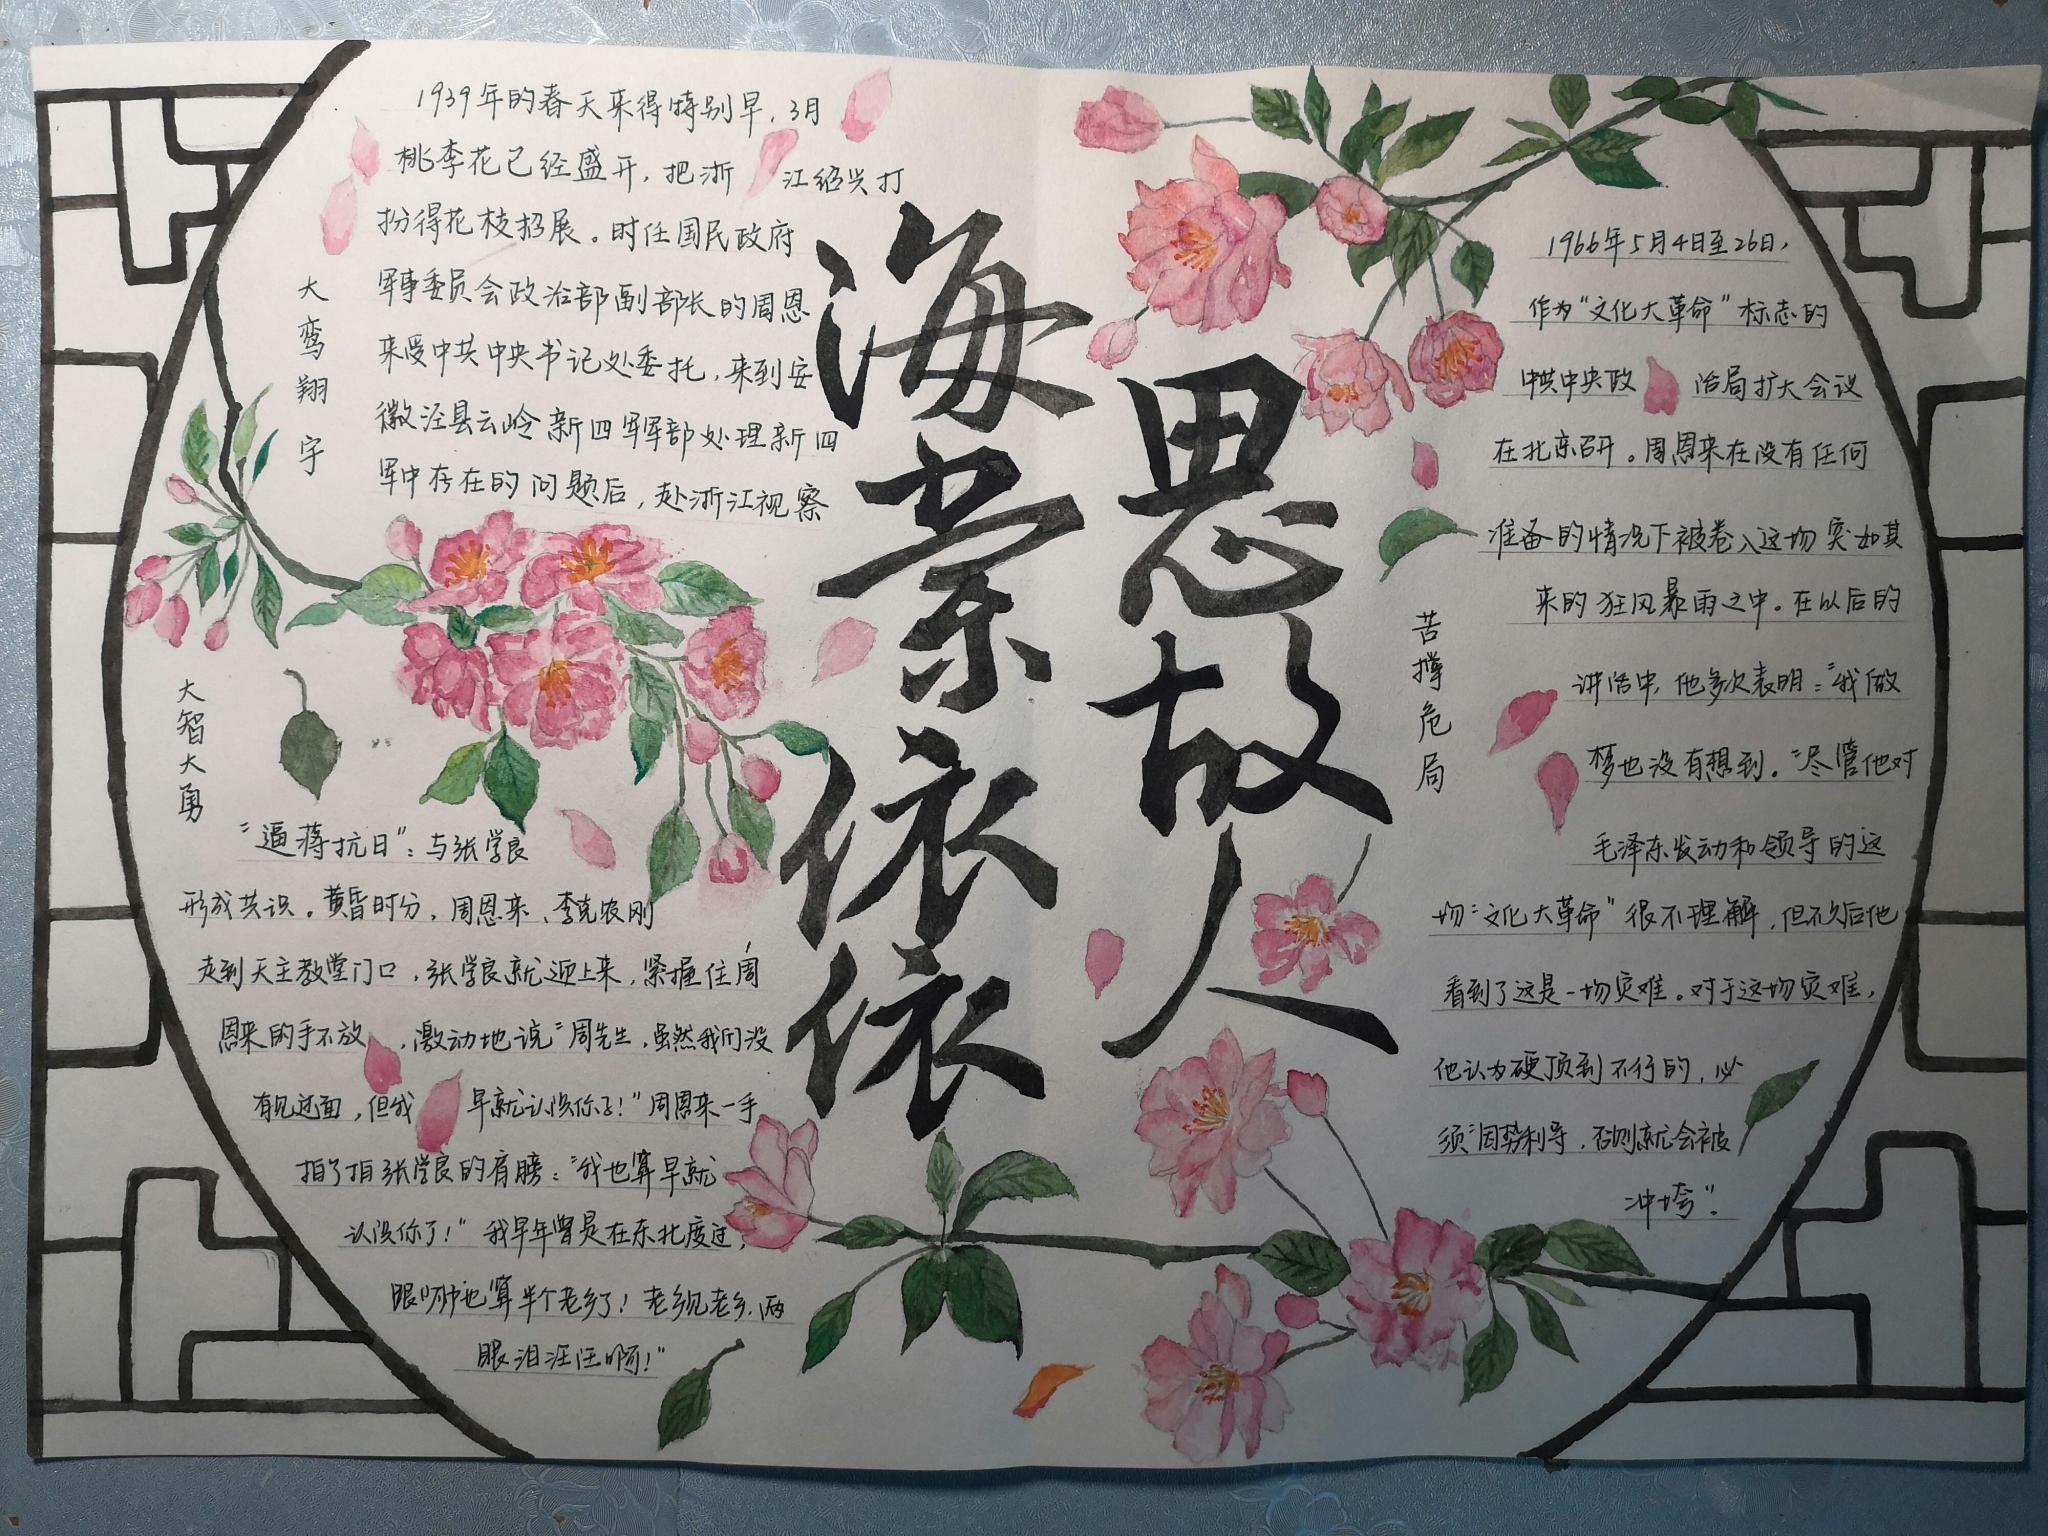 海棠依依
思故人
大鸾翔宇
1939年的春天来得特别早，3月
桃李花已经盛开，把浙江绍兴打
扮得花枝招展。时任国民政府
军事委员会政治部副部长的周恩
来受中共中央书记处委托，来到安
徽泾县云岭新四军军部处理新四
军中存在的问题后，赴浙江视察
大智大勇
“逼蒋抗日”：与张学良
形成共识。黄昏时分，周恩来、李克农刚
走到天主教堂门口，张学良就迎上来，紧握住周
恩来的手不放，激动地说“周先生，虽然我们没
有见过面，但我早就认识你了！”周恩来一手
拍了拍张学良的肩膀：“我也算早就
认识你了！”我早年曾是在东北度过，
眼啊也算半个老乡了！老乡见老乡，两
眼泪汪汪啊！”
苦撑危局
1966年5月4日至26日，
作为“文化大革命”标志的
中共中央政治局扩大会议
在北京召开。周恩来在没有任何
准备的情况下被卷入这场突如其
来的狂风暴雨之中。在以后的
讲话中，他多次表明：“我做
梦也没有想到。”尽管他对
毛泽东发动和领导的这
场“文化大革命”很不理解，但不久后他
看到了这是一场灾难。对于这场灾难，
他认为硬顶到不行的，必
须“因势利导，否则就会被
冲垮”。